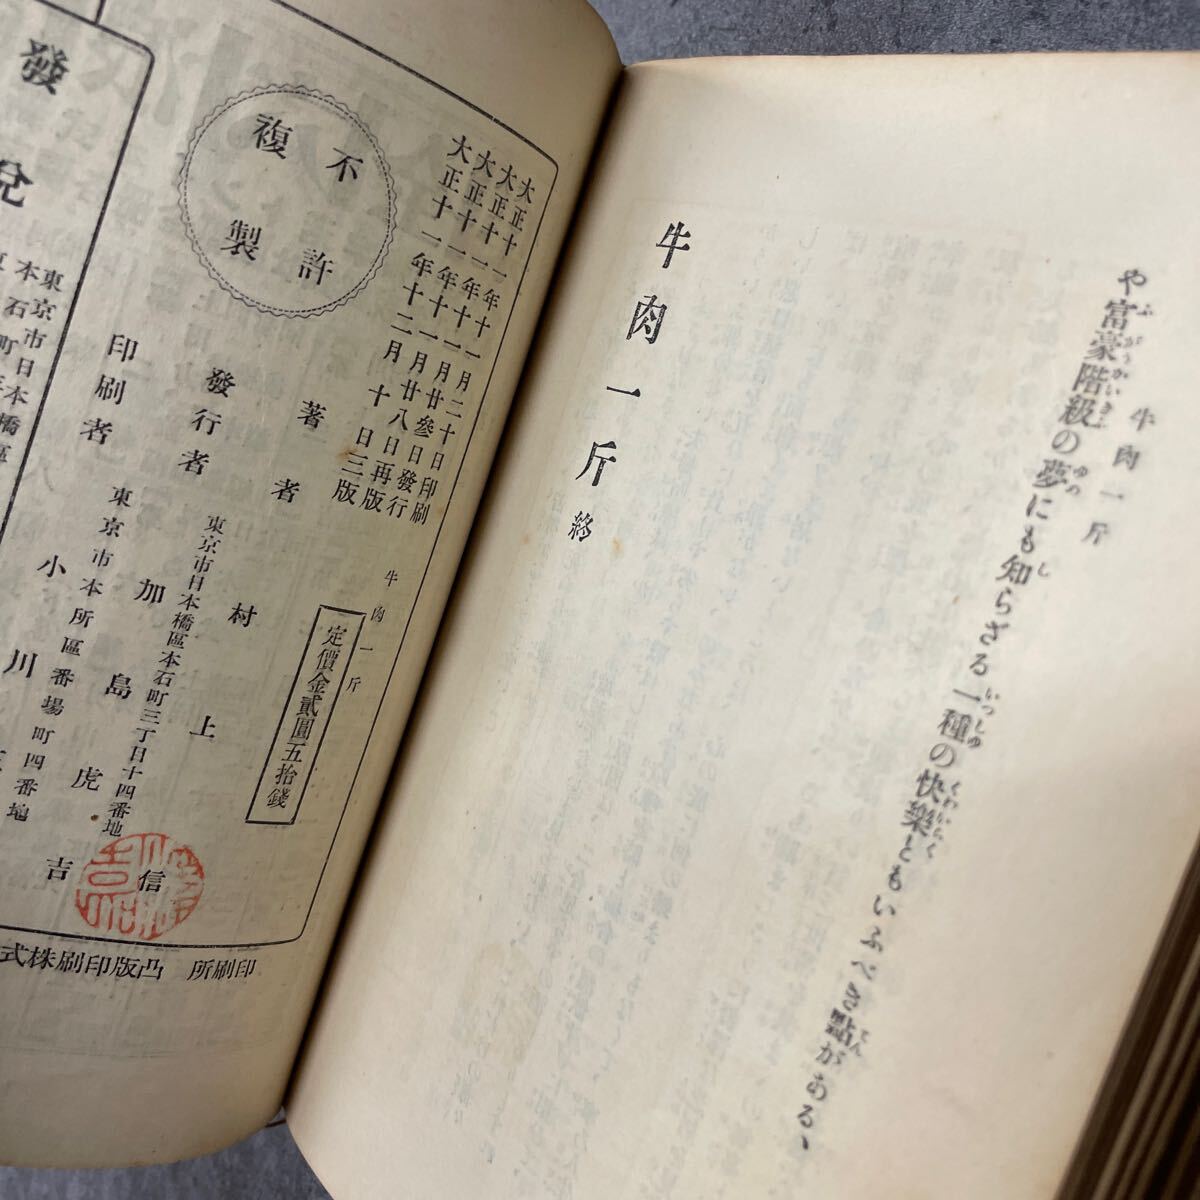 牛肉一斤
ふがうかいきふ ゆめ し いつしゆ くわいらく てん
や富豪階級の夢にも知らざる一種の快樂ともいふべき點がある、
牛肉一斤 終
大正十一年十一月二十日印刷
大正十一年十一月廿參日發行
大正十一年十一月廿八日再版
大正十一年十二月十日三版
牛肉一斤
定價金貳圓五拾錢
著者 村上信
發行者 東京市日本橋區本石町三丁目十四番地
加島虎吉
印刷者 東京市本所區番場町四番地
小川
不許
複製
印刷所 凸版印刷株式
發兌
東京市日本橋區
本石町